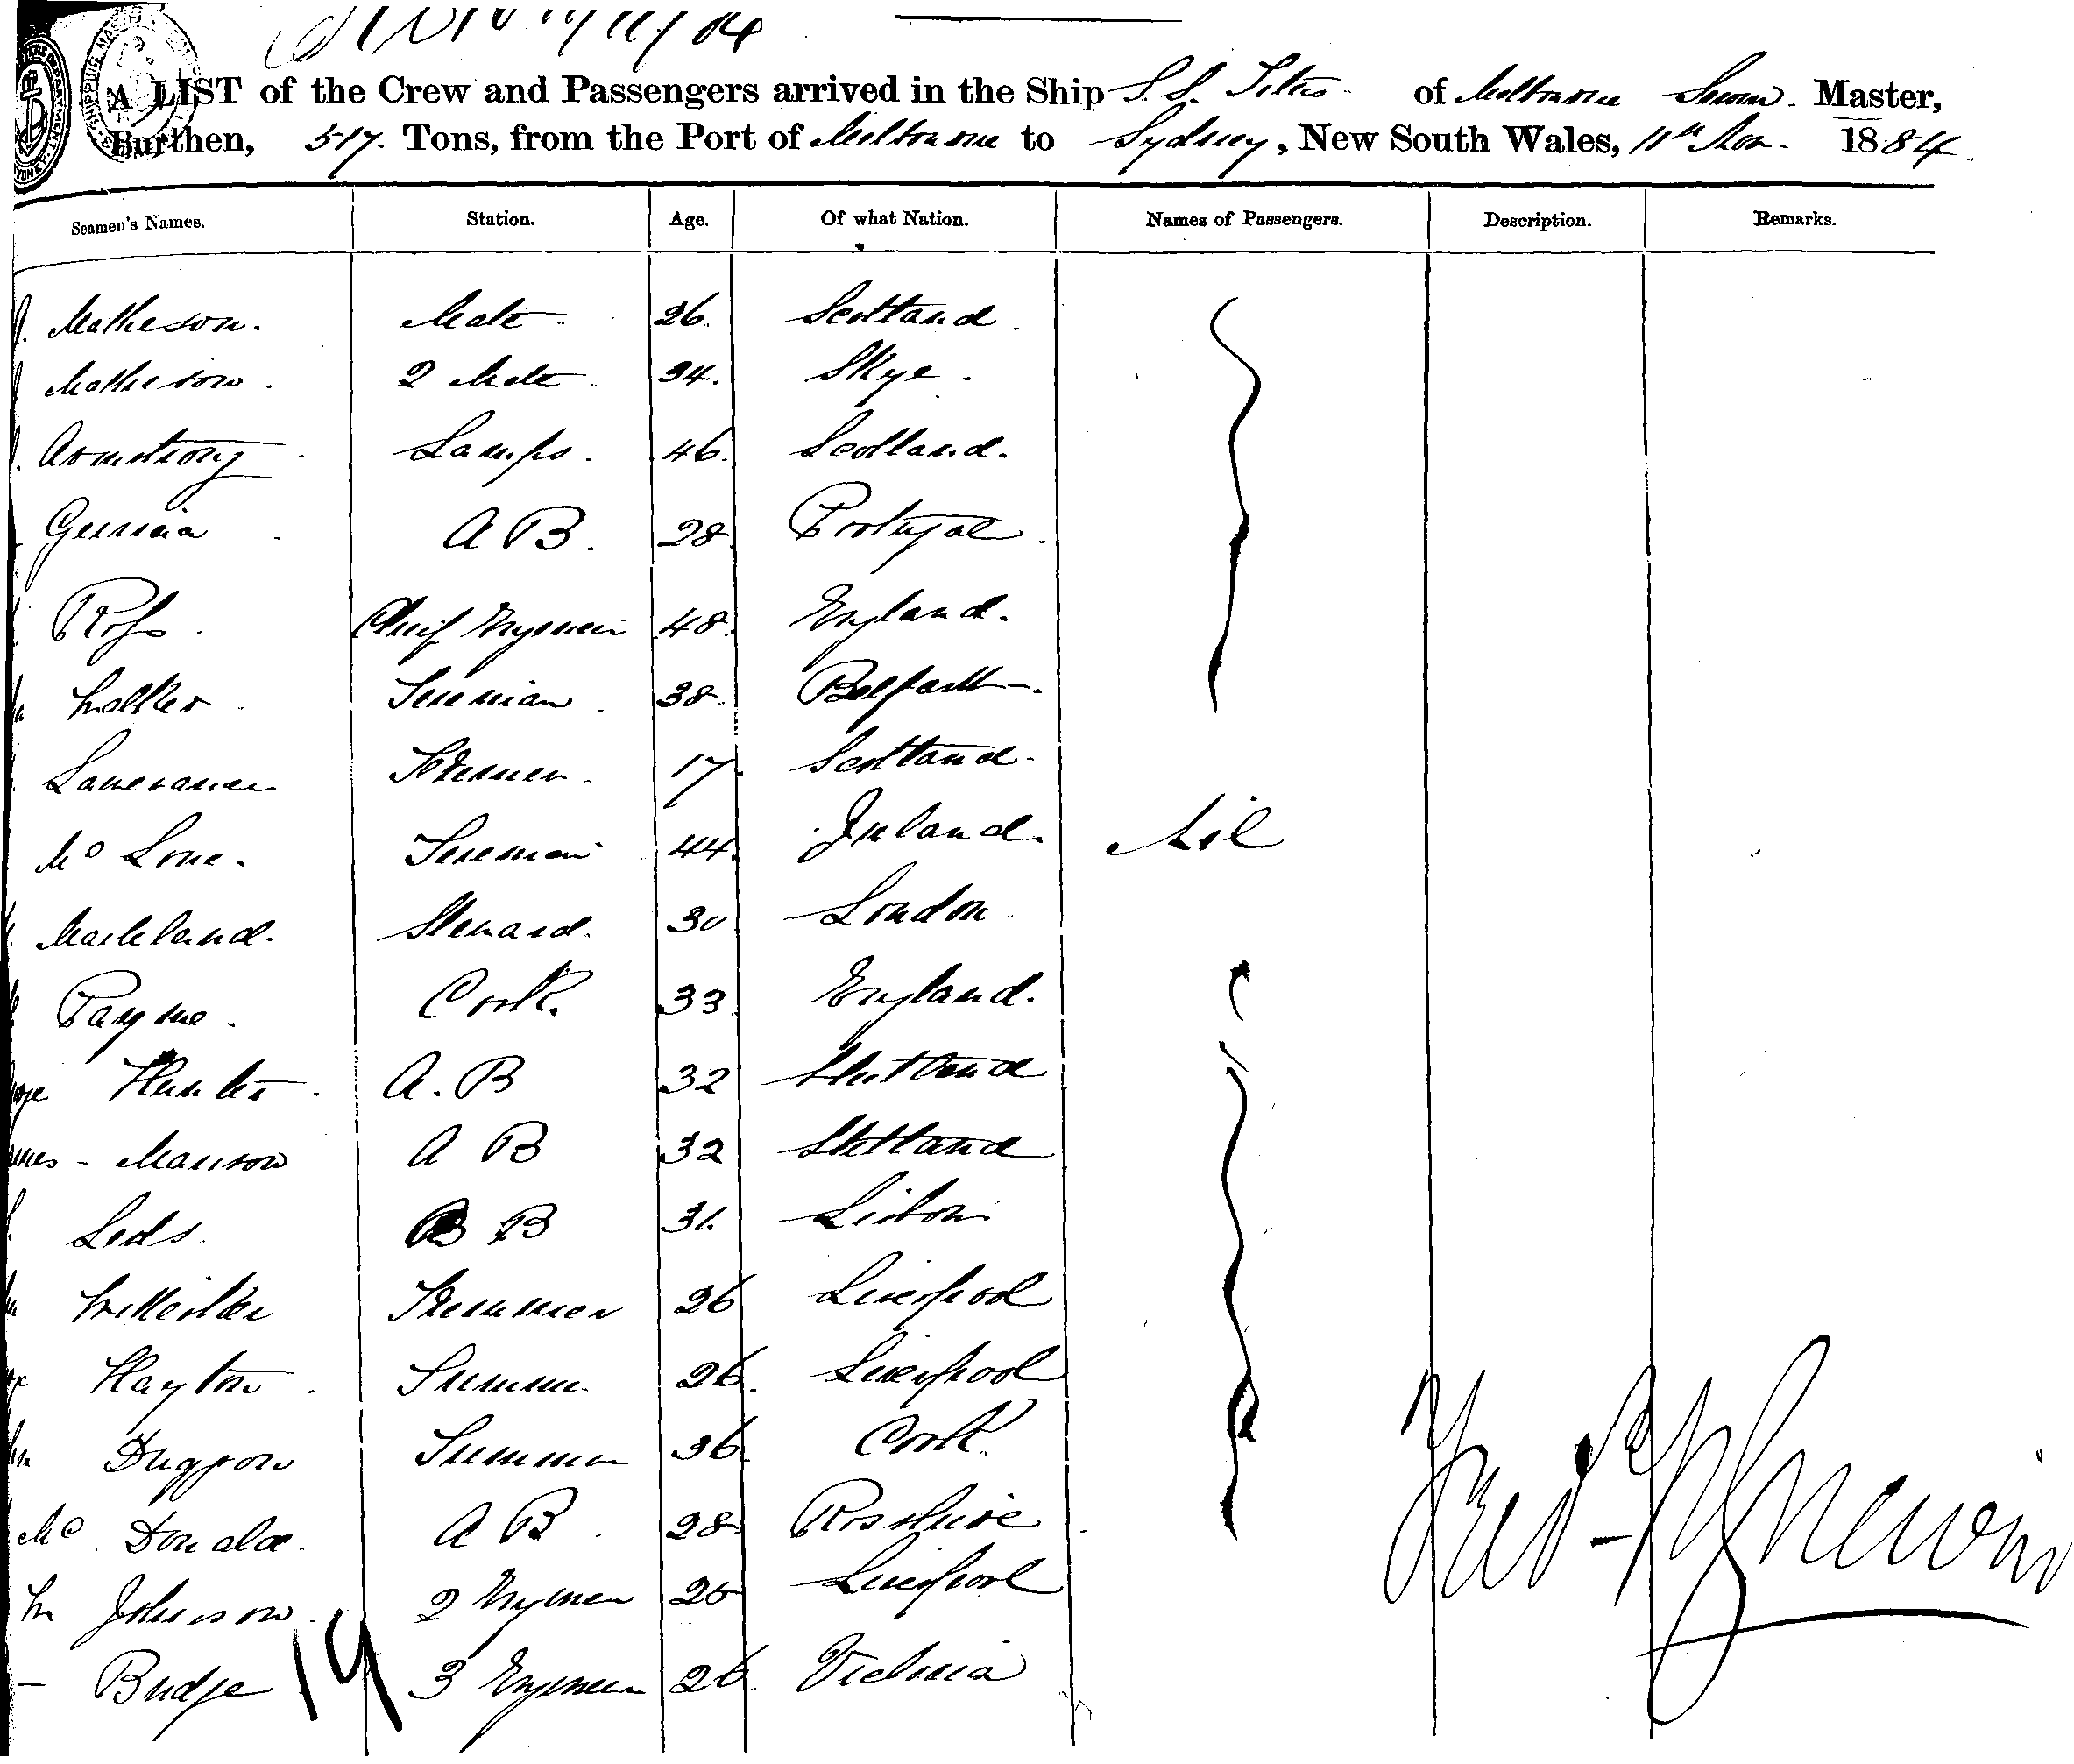 11/11/84
A LIST of the Crew and Passengers arrived in the Ship S.S. of Melbourne Master,
Burthen, 517. Tons, from the Port of Melbourne to Sydney, New South Wales, 11th Nov. 1884.
Seamen's Names. Station. Age. Of what Nation. Names of Passengers. Description. Remarks.
Matheson. Mate. 26. Scotland.
Mathieson. 2 Mate. 34. Skye.
Armstrong Lamps. 46. Scotland.
A B. 28. Portugal.
Ross. Chief Engineer 48. England.
Walker Fireman. 38. Belfast.
Fireman. 17. Scotland.
Mc Fireman 44. Ireland. Nil
Markland. Steward. 30 London
Payne. Cook. 33. England.
Hunter. A. B 32 Shetland
Manson A B 32 Shetland
B 31. Lisbon
Fireman 26 Liverpool
Hayton. Fireman. 26. Liverpool
Duggan Fireman 36 Cork.
Mc Donald. A B. 28. Rosshire
Wm Johnson. 2 Engineer 26 Liverpool
- Budge 19 3 Engineer 26. Victoria